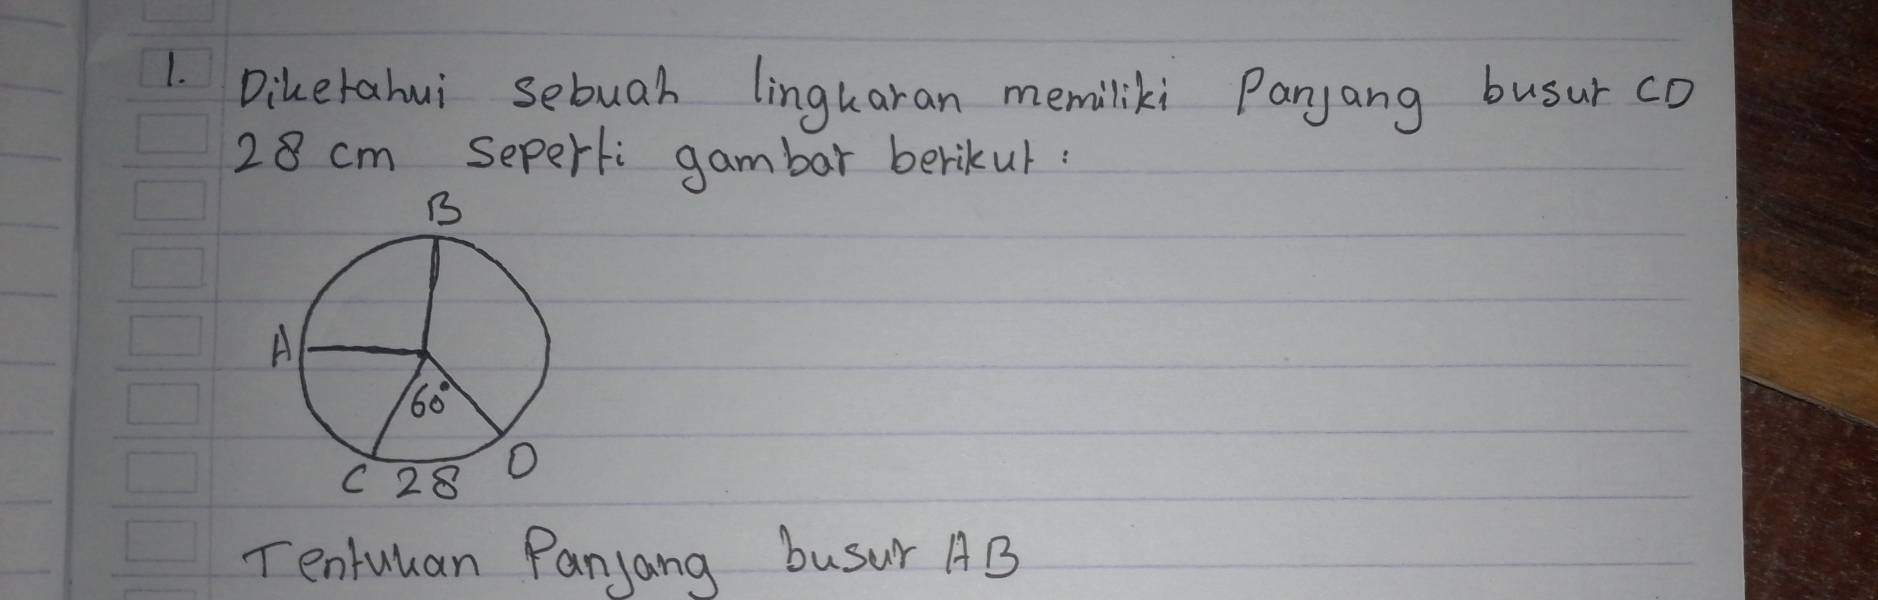 1. Diketahui sebuah lingkaran memiliki Panjang busur CD
28 cm seperti gambar berikut :
B
A
60°
C 28 D
Tentukan Panjang busur AB